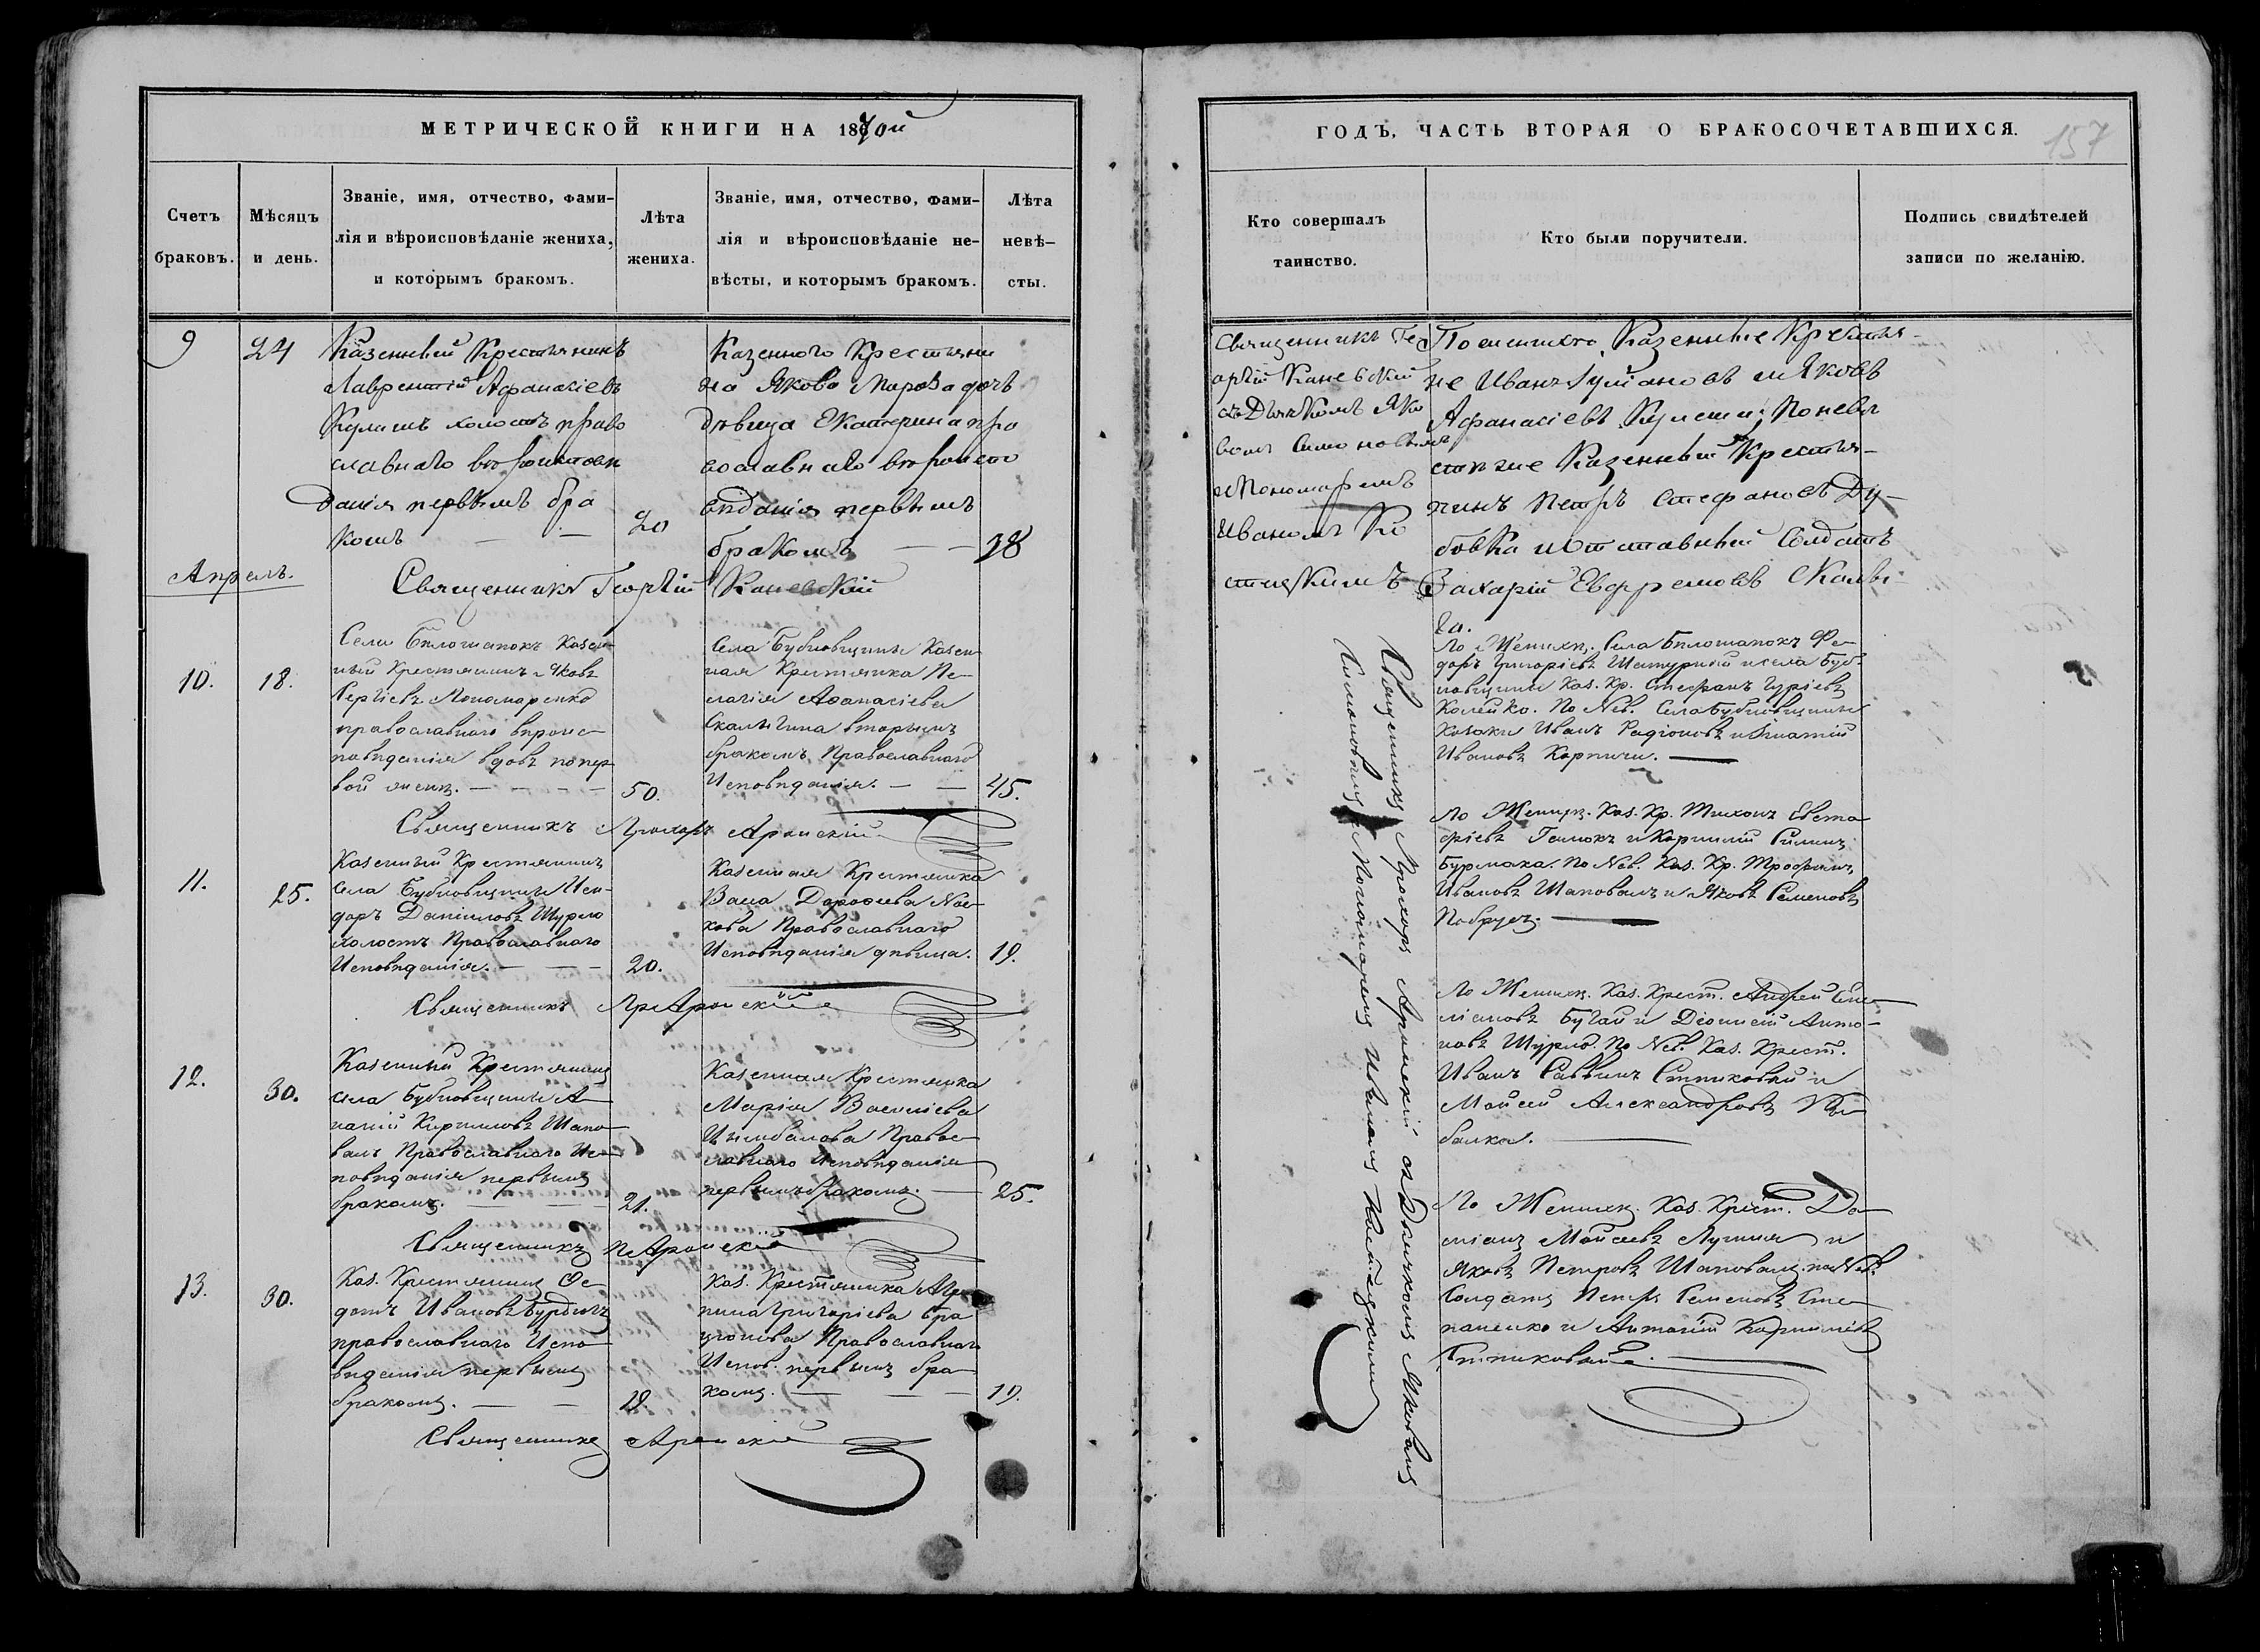 МЕТРИЧЕСКОЙ КНИГИ НА 1870й
Счетъ браковъ.
Мѣсяцъ и день.
Званіе, имя, отчество, фами-
лія и вѣроисповѣданіе жениха,
и которымъ бракомъ.
Лѣта жениха.
Званіе, имя, отчество, фами-
лія и вѣроисповѣданіе не-
вѣсты, и которымъ бракомъ.
Лѣта
невѣ-
сты.
9
24
Казенный Крестьянинъ
Лаврентій Афанасіевъ
Кулишъ холостъ право
славнаго вѣроисповѣ
данія первымъ бра
комъ
20
Казенного Крестьяни
на Якова дочь
дѣвица Екатерина пра
вославнаго вѣроиспо
вѣданія первымъ
бракомъ
18
Священникъ Георгій Каневскій
Апрель.
10.
18.
Села Бѣлошапокъ Казен
ный Крестянинъ Яковъ
Сергіевъ Пономаренко
православнаго вѣроис-
повѣданія вдовъ по пер
вой женѣ.
50.
Села Бубновщины Казен
ная Крестянка Пе-
лагія Афанасіева
Скалыгина вторымъ
бракомъ, Православнаго
Исповѣданія.
45.
Священникъ Прохоръ Аронскій
11.
25.
Казенный Крестянинъ
села Бубновщины Иси-
доръ Даніиловъ Шурло
холостъ Православнаго
Исповѣданія.
20.
Казенная Крестянка
Васса Дорофеева Нос-
кова Православнаго
Исповѣданія дѣвица.
19.
Священникъ Пр Аронскій
12.
30.
Казенный Крестянинъ
села Бубновщины А-
наній Кириловъ Шапо
валъ Православнаго Ис-
повѣданія первымъ
бракомъ.
21.
Казенная Крестянка
Марія Василіева
Цымбалова Правос-
лавнаго Исповѣданія
первымъ бракомъ.
25.
Священникъ П Аронскій
13.
30.
Каз. Крестянинъ Фе-
дотъ Ивановъ
православнаго Испо
вѣданія первымъ
бракомъ.
Каз. Крестянка Агри
пина Григоріева
Православнаго
Испов. первымъ бра
комъ.
19.
Священникъ Аронскій
ГОДЪ, ЧАСТЬ ВТОРАЯ О БРАКОСОЧЕТАВШИХСЯ.
157
Кто совершалъ
таинство.
Кто были поручители.
Подпись свидѣтелей
записи по желанію.
Священникъ Ге
оргій Каневскій
съ Дьячкомъ Яко
вомъ Симоновымъ
и Пономаремъ
Иваномъ Ко
стицкимъ
По женихѣ Казенные Крестья-
не Иванъ и Яковъ
Афанасіевъ Кулиши; По невѣ
стѣ же Казенный Крестья-
нинъ Петръ Стефановъ Ду-
бовка и Отставный Солдатъ
Захарій Евфремовъ Скалы
га.
По Женихѣ. Села Бѣлошапокъ Фе-
доръ Григоріевъ и села Буб-
новщины Каз. Кр. Стефанъ Гуріевъ
Копейко. По Нев. Села Бубновщины
Козаки Иванъ Радіоновъ и Игнатій
Ивановъ Карпичи.
По Женихѣ. Каз. Кр. Тихонъ Евста-
фіевъ и Корнилій
Бурмака. По Нев. Каз. Кр. Трофимъ
Ивановъ Шаповалъ и Яковъ Семеновъ
По Женихѣ. Каз. Крест. Андрей
Бугай и Діонисій Анто-
новъ Шурло. По Нев. Каз. Крест.
Иванъ Саввинъ Ситниковый и
Моисей Александровъ
балка.
По Женихѣ. Каз. Крест. Да-
міанъ Моисеевъ и
Яковъ Петровъ Шаповалъ. по Нев.
Солдатъ Петръ Семеновъ Сте-
паненко и Антоній
Ситниковый.
Священникъ Прохоръ Аронскій съ Дьячкомъ Яковомъ
Симоновымъ и Пономаремъ Иваномъ Костицкимъ